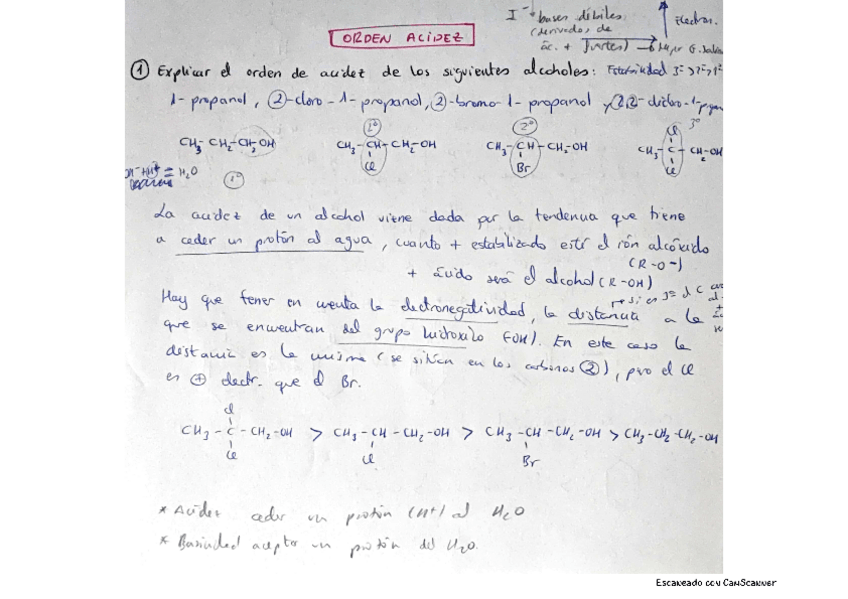 I⁻ bases débiles
(derivados de
ác. + fuertes)
Electron.
ORDEN ACIDEZ
① Explicar el orden de acidez de los siguientes alcoholes: Estabilidad 3º>2º>1º
1-propanol, ②-cloro-1-propanol, ②-bromo-1-propanol y 2,2-dicloro-1-
CH3-CH2-CH2OH CH3-CH-CH2-OH CH3-CH-CH2-OH CH3-C-CH2-OH
1º 2º 2º 3º
Cl Br Cl Cl
H2O
La acidez de un alcohol viene dada por la tendencia que tiene
a ceder un protón al agua, cuanto + estabilizado esté el ión alcóxido
(R-O-)
+ ácido será el alcohol (R-OH)
Hay que tener en cuenta la electronegatividad, la distancia a la
que se encuentran del grupo hidroxilo (OH). En este caso la
distancia es la misma (se sitúan en los carbonos ②), pero el Cl
es ⊕ electr. que el Br.
Cl
CH3-C-CH2-OH > CH3-CH-CH2-OH > CH3-CH-CH2-OH > CH3-CH2-CH2-OH
Cl Cl Br
* Acidez ceder un protón (H+) al H2O
* Basicidad aceptar un protón del H2O.
Escaneado con CamScanner